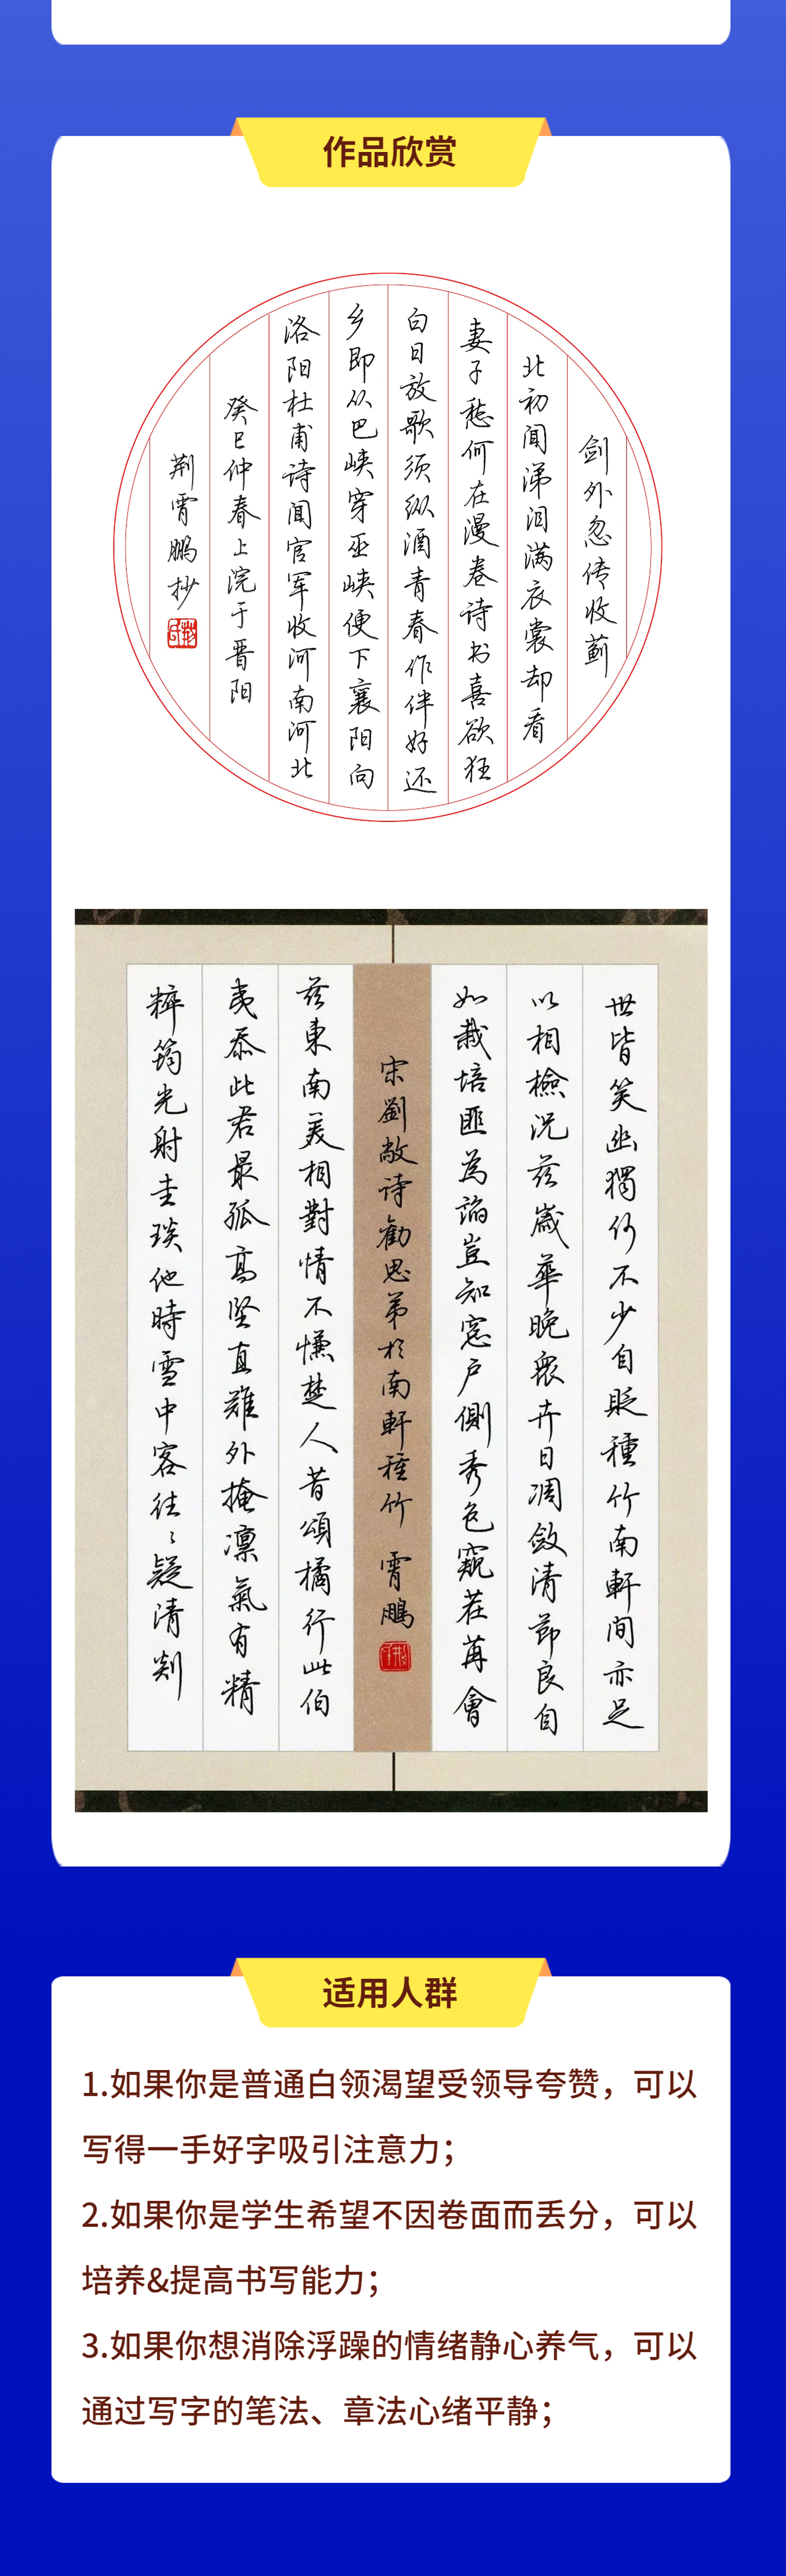 作品欣赏
剑外忽传收蓟
北初闻涕泪满衣裳却看
妻子愁何在漫卷诗书喜欲狂
白日放歌须纵酒青春作伴好还
乡即从巴峡穿巫峡便下襄阳向
洛阳杜甫诗闻官军收河南河北
癸巳仲春上浣于晋阳
荆霄鹏抄
世皆笑幽獨何不少自貶種竹南軒间亦足
以相檢况兹嵗華晚衆卉日凋斂清節良自
如栽培匪為諂豈知窓户側秀色窺荏苒會
宋劉敞诗勸思弟於南軒種竹 霄鵬
兹東南美相對情不慊楚人昔頌橘行此伯
夷忝此君最孤高坚直難外掩凛氣有精
粹筠光射圭琰他時雪中客往〻疑清剡
适用人群
1.如果你是普通白领渴望受领导夸赞，可以
写得一手好字吸引注意力；
2.如果你是学生希望不因卷面而丢分，可以
培养&提高书写能力；
3.如果你想消除浮躁的情绪静心养气，可以
通过写字的笔法、章法心绪平静；